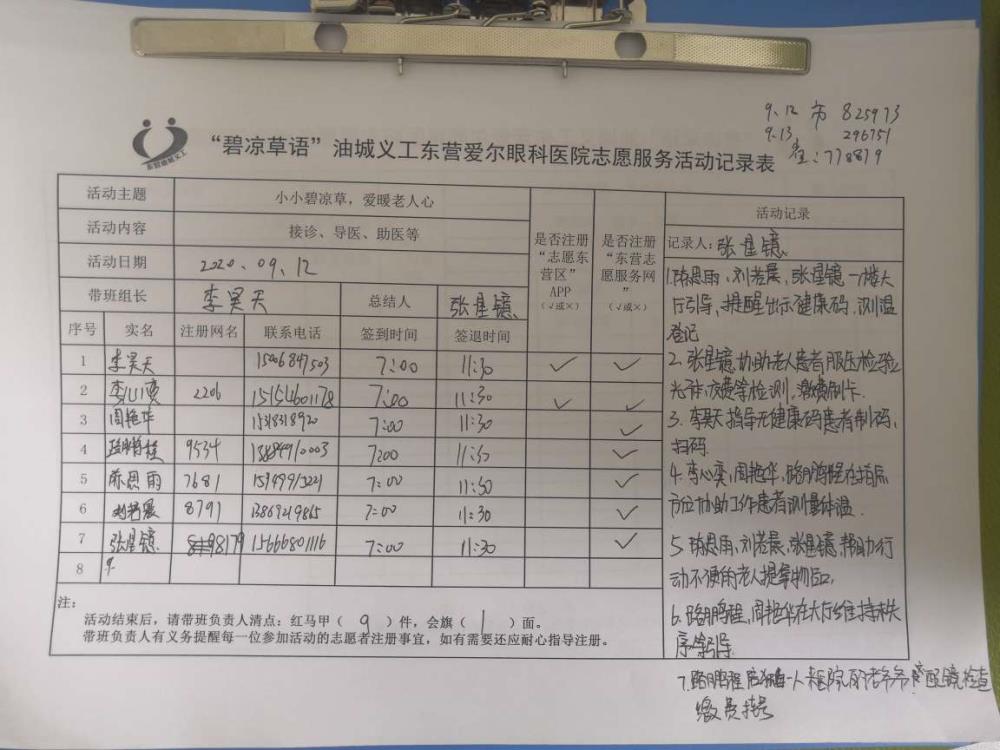 9.12 市 825973
9.13 296751
779879
东营油城义工
“碧凉草语”油城义工东营爱尔眼科医院志愿服务活动记录表
活动主题 小小碧凉草，爱暖老人心
活动内容 接诊、导医、助医等
活动日期 2020.09.12
带班组长 李昊天 总结人 张星镱
是否注册“志愿东营区”APP（√或×）
是否注册“东营志愿服务网”（√或×）
序号 实名 注册网名 联系电话 签到时间 签退时间
1 李昊天 15006847503 7:00 11:30 ✓ ✓
2 李心奕 2206 151546601178 7:00 11:30 ✓ ✓
3 周艳华 15318318920 7:00 11:30 ✓
4 路鹏程 9534 7:00 11:30 ✓
5 陈思雨 7681 7:00 11:30 ✓
6 刘若晨 8791 13869219815 7:00 11:30 ✓
7 张星镱 98179 15666801116 7:00 11:30 ✓
8
注：
活动结束后，请带班负责人清点：红马甲（ 9 ）件，会旗（ 1 ）面。
带班负责人有义务提醒每一位参加活动的志愿者注册事宜，如有需要还应耐心指导注册。
活动记录
记录人：张星镱
1.陈思雨，刘若晨，张星镱一楼大
厅引导，提醒出示健康码，测温
登记
2.张星镱协助老人患者
检测，缴费刷卡.
3.李昊天指导无健康码患者制码，
扫码.
4.李心奕，周艳华，路鹏程在
协助工作患者测量体温
5.陈思雨，刘若晨，张星镱帮助行
动不便的老人提拿物品，
6.路鹏程，周艳华在大厅维持秩
序等引导.
7.路鹏程 一人来医院 爷爷 配镜检查
缴费挂号